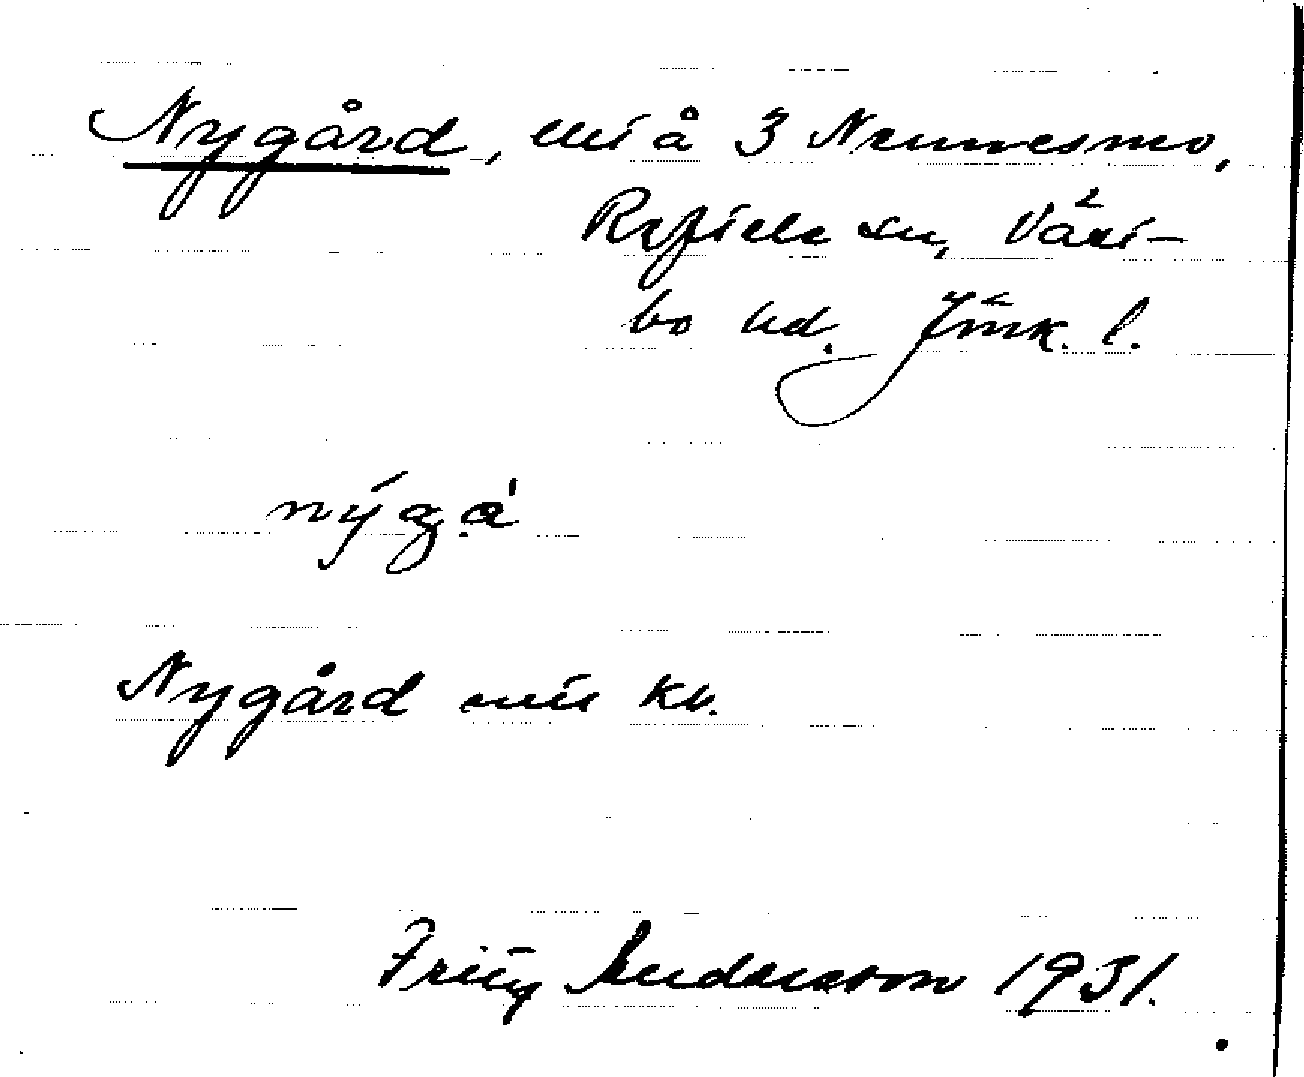 Nygård, uti å 3 Nennesmo,
Reftele sn, Västbo hd. Jönk. l.
nýgá
Nygård utis kv.
Fritz Anderson 1931.